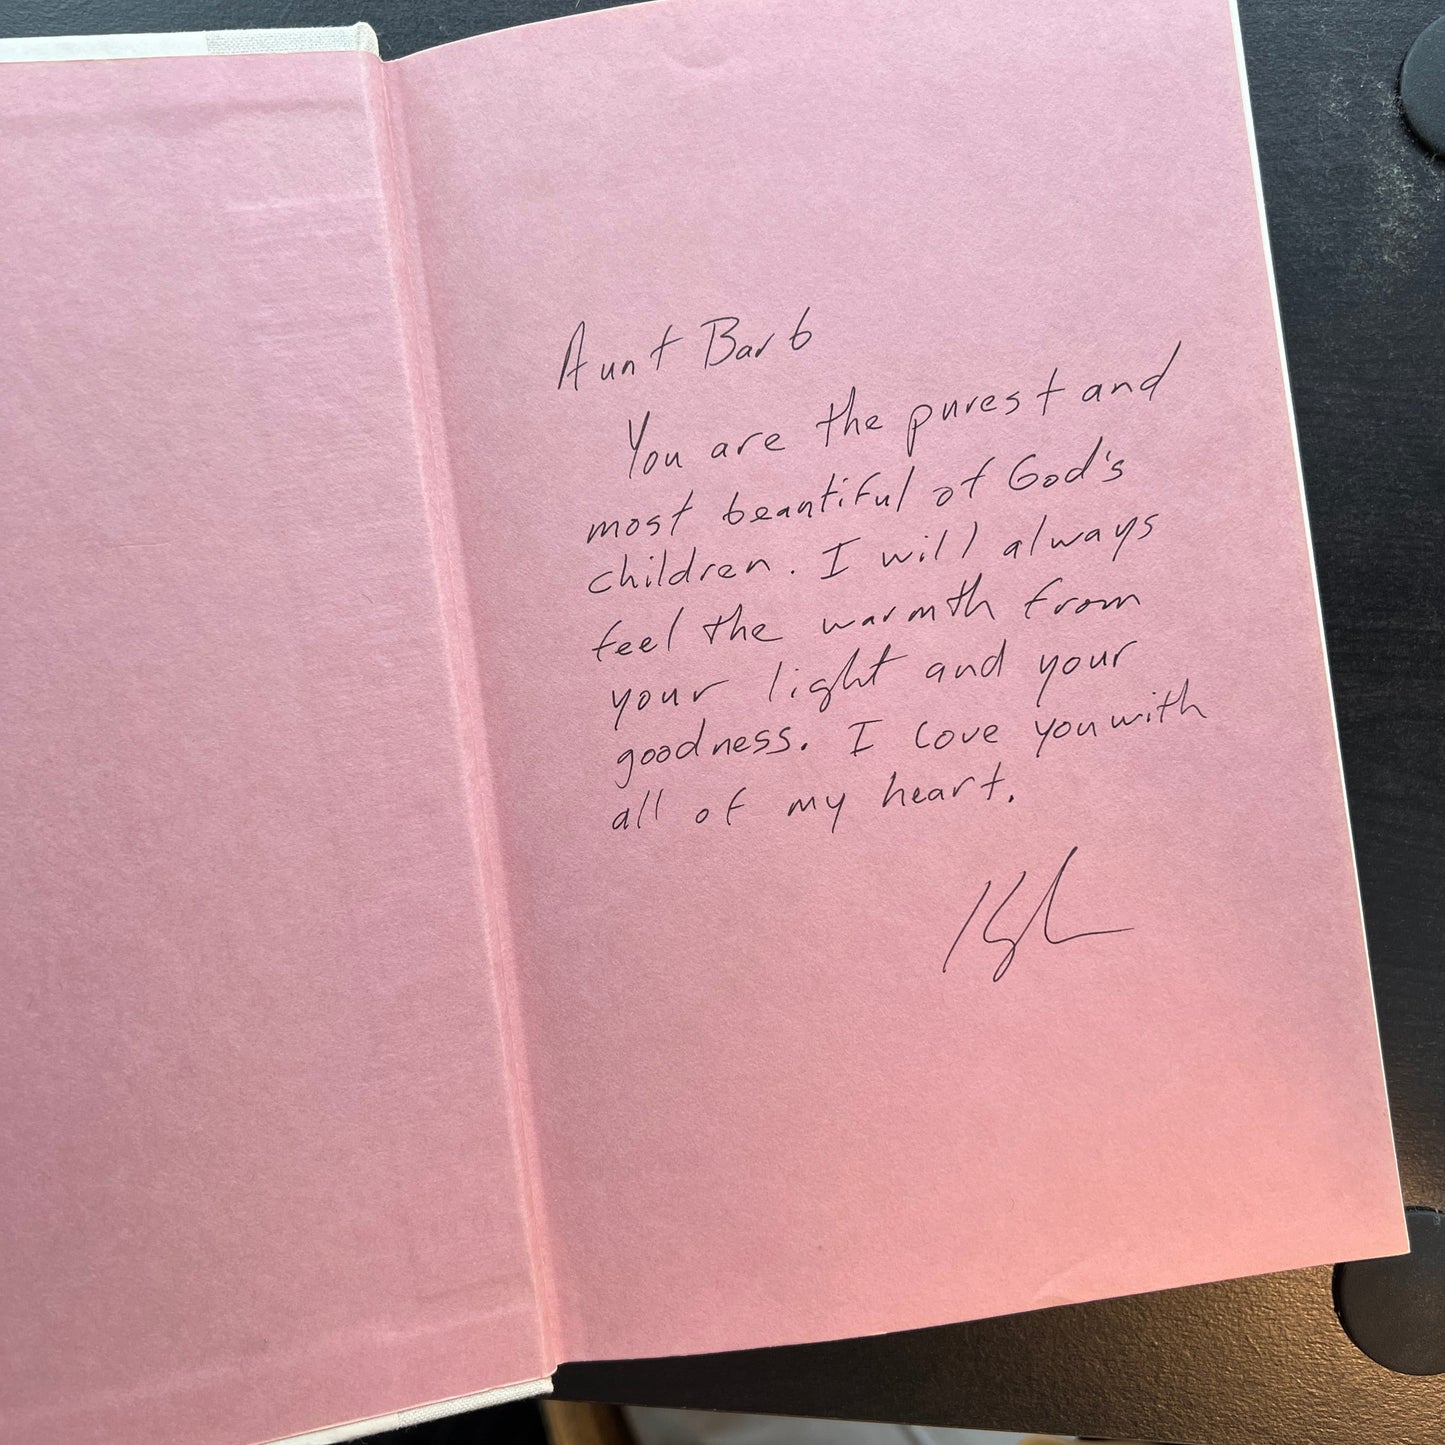 Aunt Barb
You are the purest and
most beautiful of God's
children. I will always
feel the warmth from
your light and your
goodness. I love you with
all of my heart.
Kyle